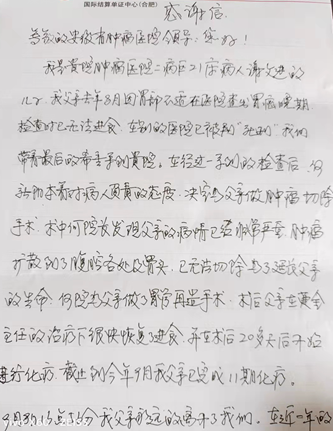 国际结算单证中心（合肥）
感谢信
尊敬的安徽省肿瘤医院领导：您好！
我是贵院肿瘤医院二病区21床病人谢文进的
儿子，我父去年8月因胃部不适在医院查出胃癌晚期
检查时已无法进食，在别的医院已被判"死刑"我们
带着最后的希望来到贵院。在经过一系列的检查后，何
院长本着对病人负责的态度，决定为父亲做肿瘤切除
手术，术中何院长发现父亲的病情已经非常严重，肿瘤
扩散到了腹腔各处及骨头，已无法切除，为了延长父亲
的生命，何院长为父亲做了胃肠再造手术，术后父亲在黄金
主任的治疗下很快恢复了进食，并在术后20多天后开始
进行化疗，截止到今年9月我父亲已完成11期化疗。
9月8日16点5分我父亲永远的离开了我们。在近一年的